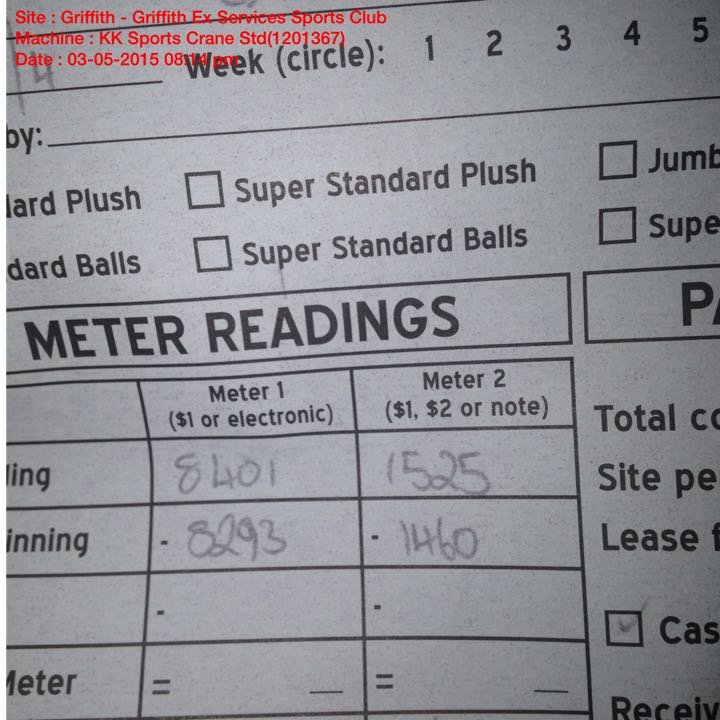 Site : Griffith - Griffith Ex Services Sports Club
Machine : KK Sports Crane Std(1201367)
Date : 03-05-2015 08:14 pm
4 Week (circle): 1 2 3 4 5
by:
dard Plush Super Standard Plush Jumb
dard Balls Super Standard Balls Supe
METER READINGS PA
Meter 1 Meter 2
($1 or electronic) ($1, $2 or note) Total co
ding 8401 1525 Site pe
inning - 8293 - 1460 Lease f
- -
✓ Cas
Meter = _ = _
Receiv